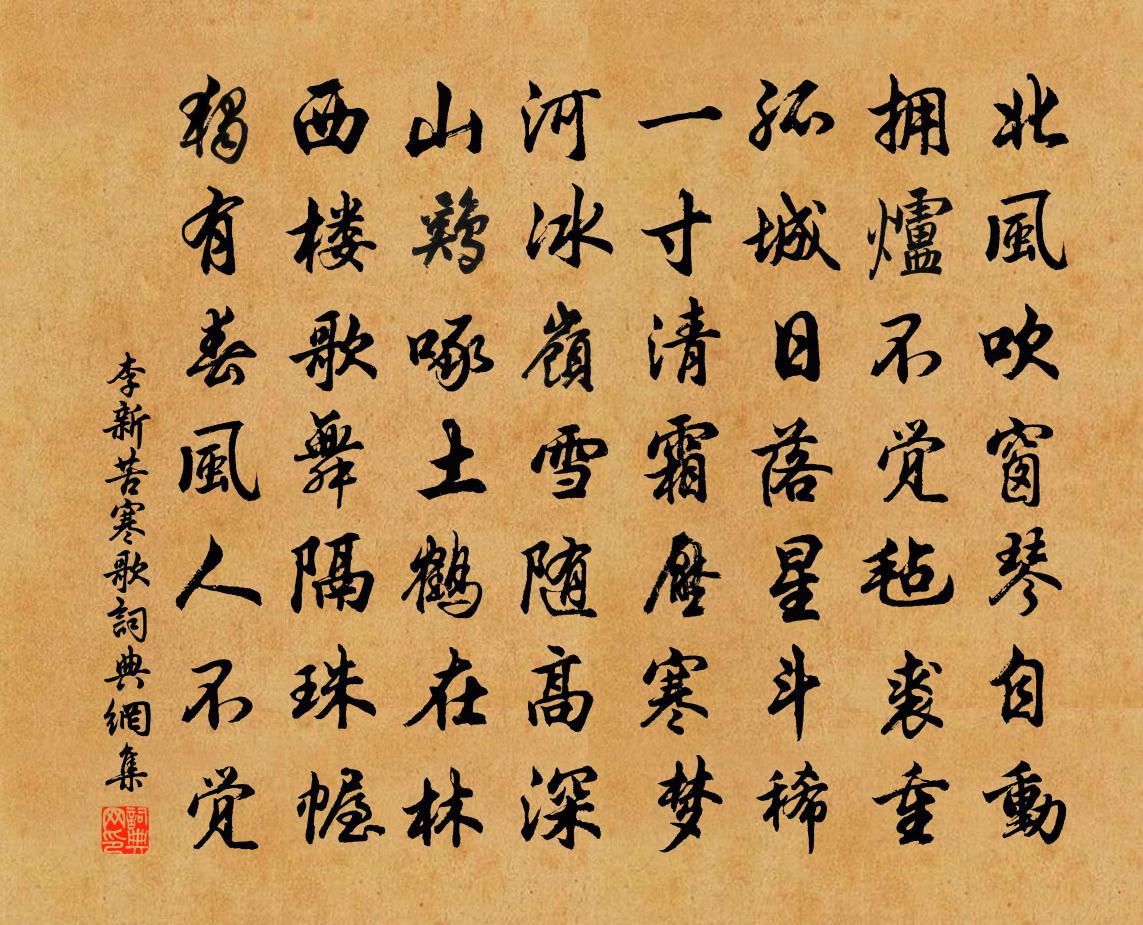 北風吹窗琴自動
拥爐不觉毡裘重
孤城日落星斗稀
一寸清霜壓寒梦
河冰嶺雪随高深
山鶏啄土鶴在林
西楼歌舞隔珠幄
獨有春風人不觉
李新苦寒歌詞典網集
詞典网印